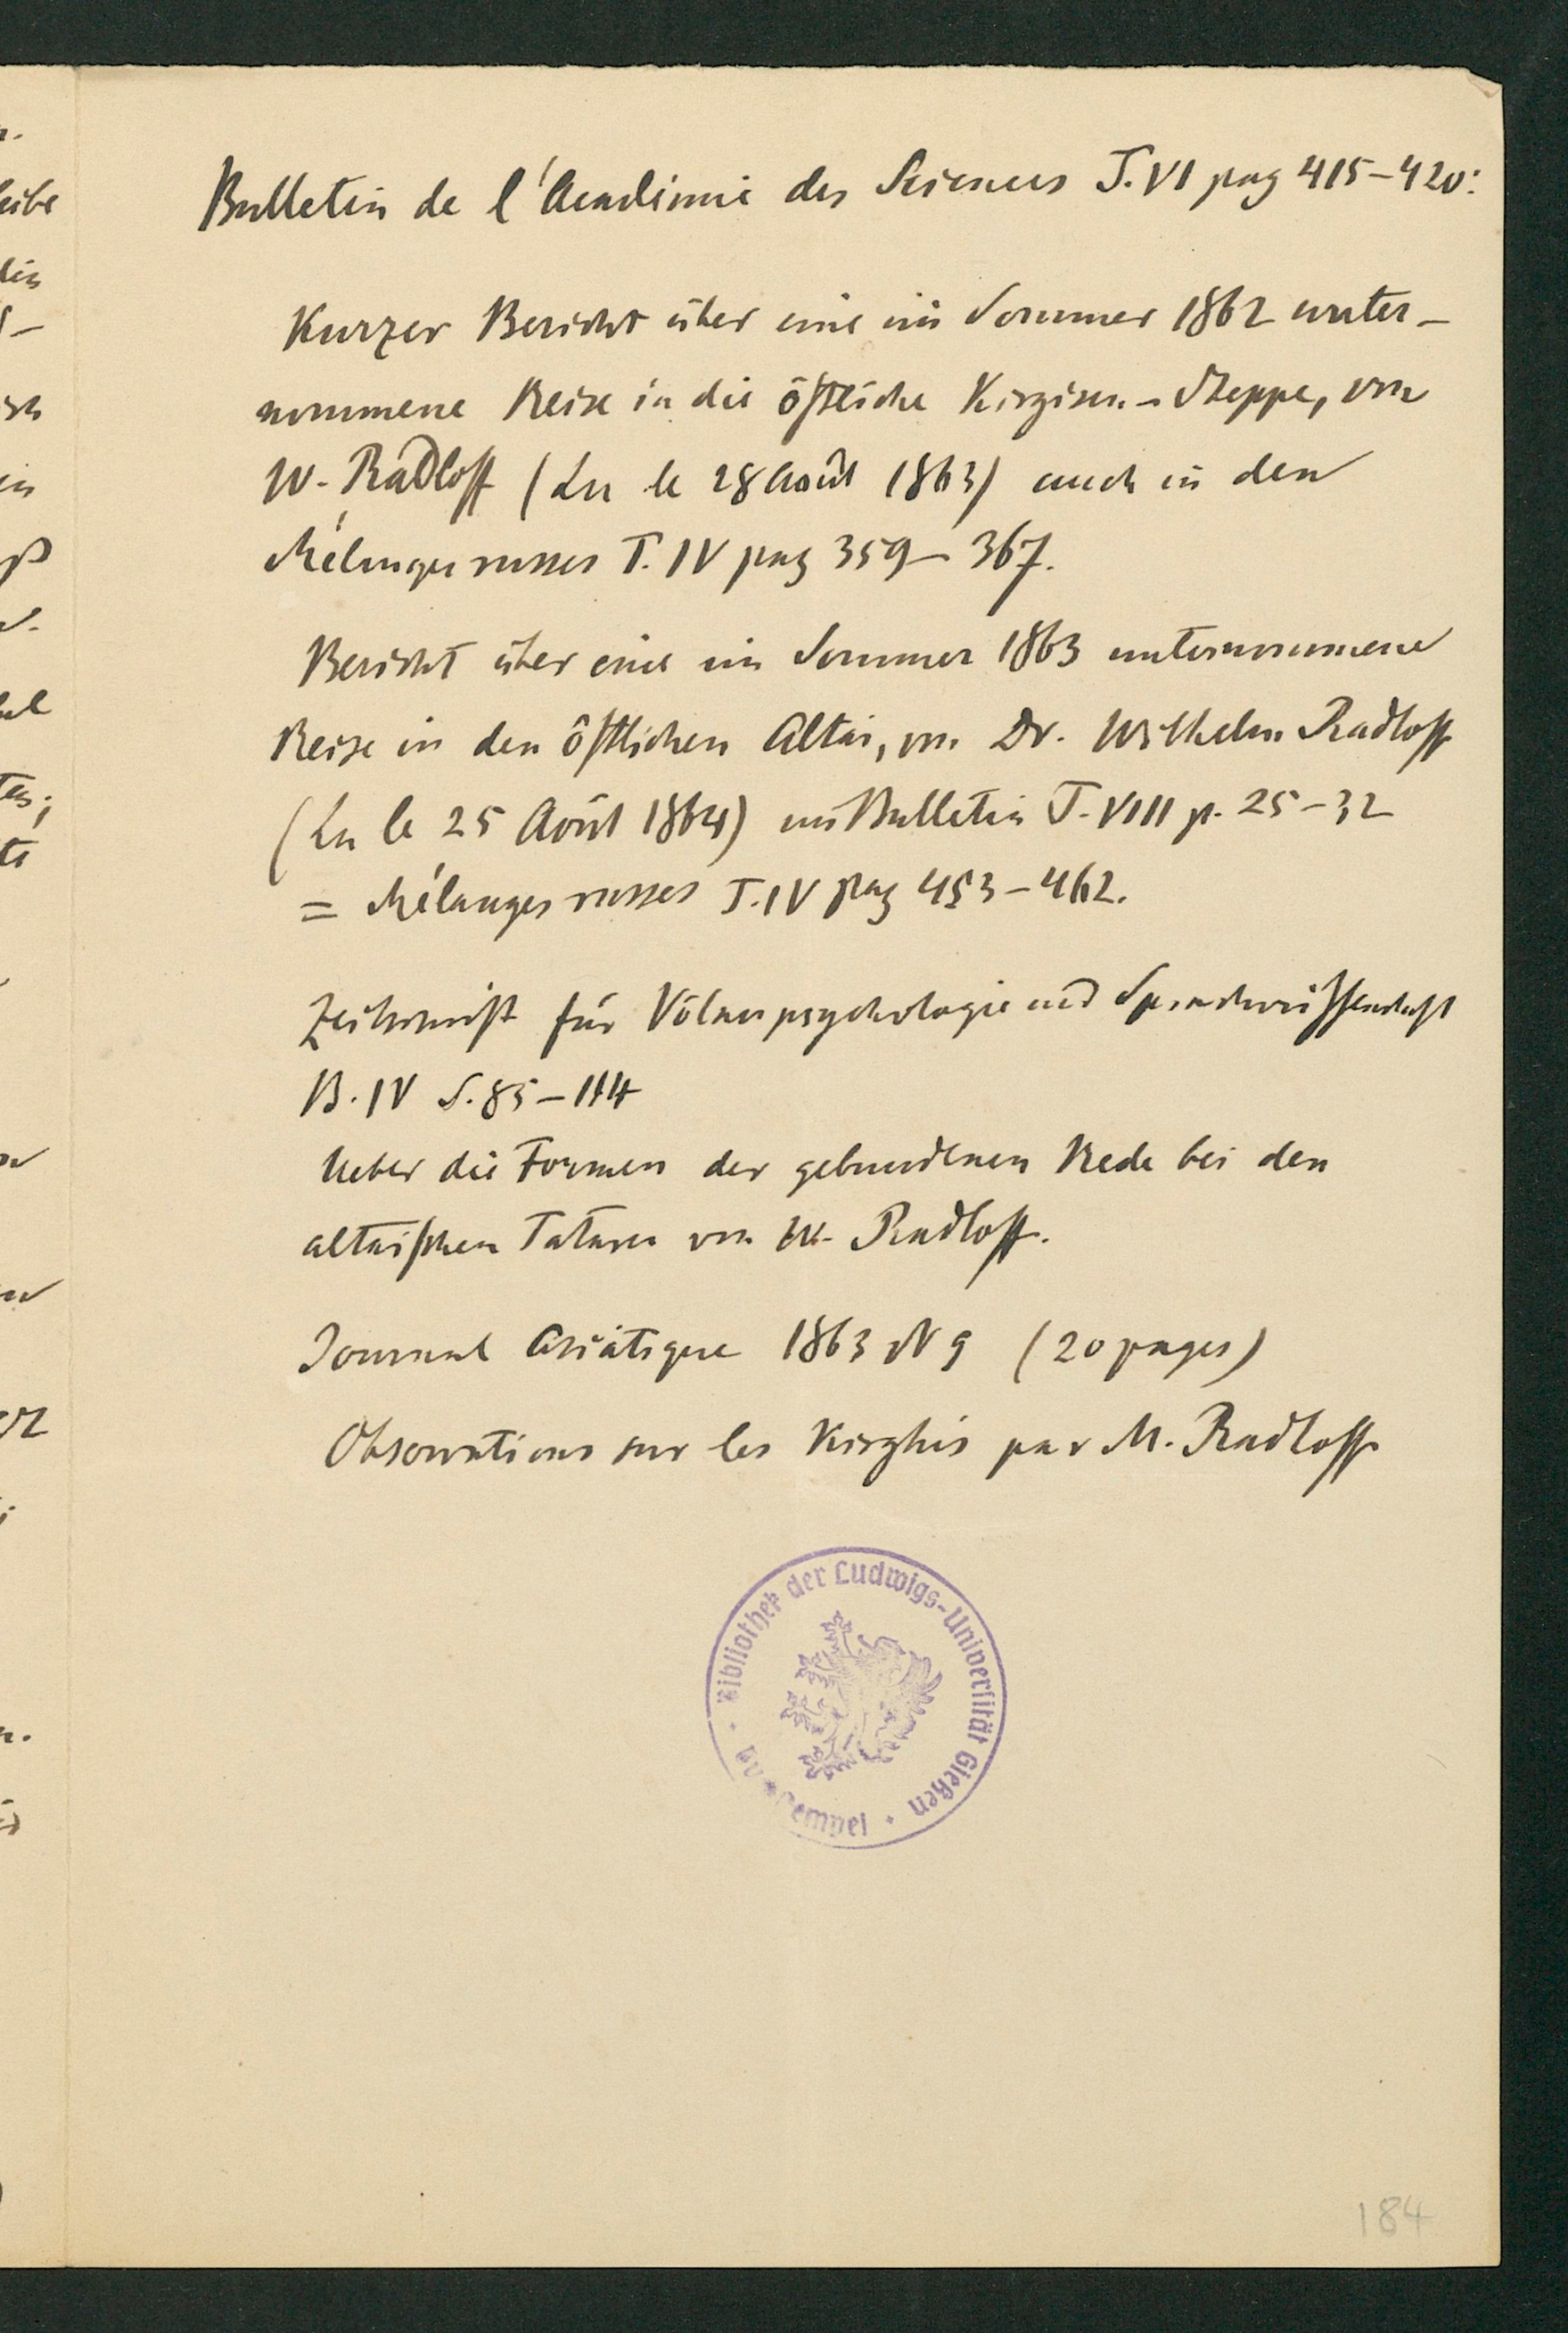 Bulletin de l'Académie des Sciences T. VI pag 415–420:
Kurzer Bericht über eine im Sommer 1862 unter-
nommene Reise in die östliche Kirgisen-Steppe, von
W. Radloff (Lu le 28 Août 1863) auch in den
Mélanges russes T. IV pag 359–367.
Bericht über eine im Sommer 1863 unternommene
Reise in den östlichen Altai, von Dr. Wilhelm Radloff
(Lu le 25 Août 1864) im Bulletin T. VIII p. 25–32
= Mélanges russes T. IV pag 453–462.
Zeitschrift für Völkerpsychologie und Sprachwissenschaft
B. IV S. 85–114
Ueber die Formen der gebundenen Rede bei den
altaischen Tataren von W. Radloff.
Journal Asiatique 1863 N 9 (20 pages)
Observations sur les Kirghis par M. Radloff
Bibliothek der Ludwigs-Universität Gießen
184